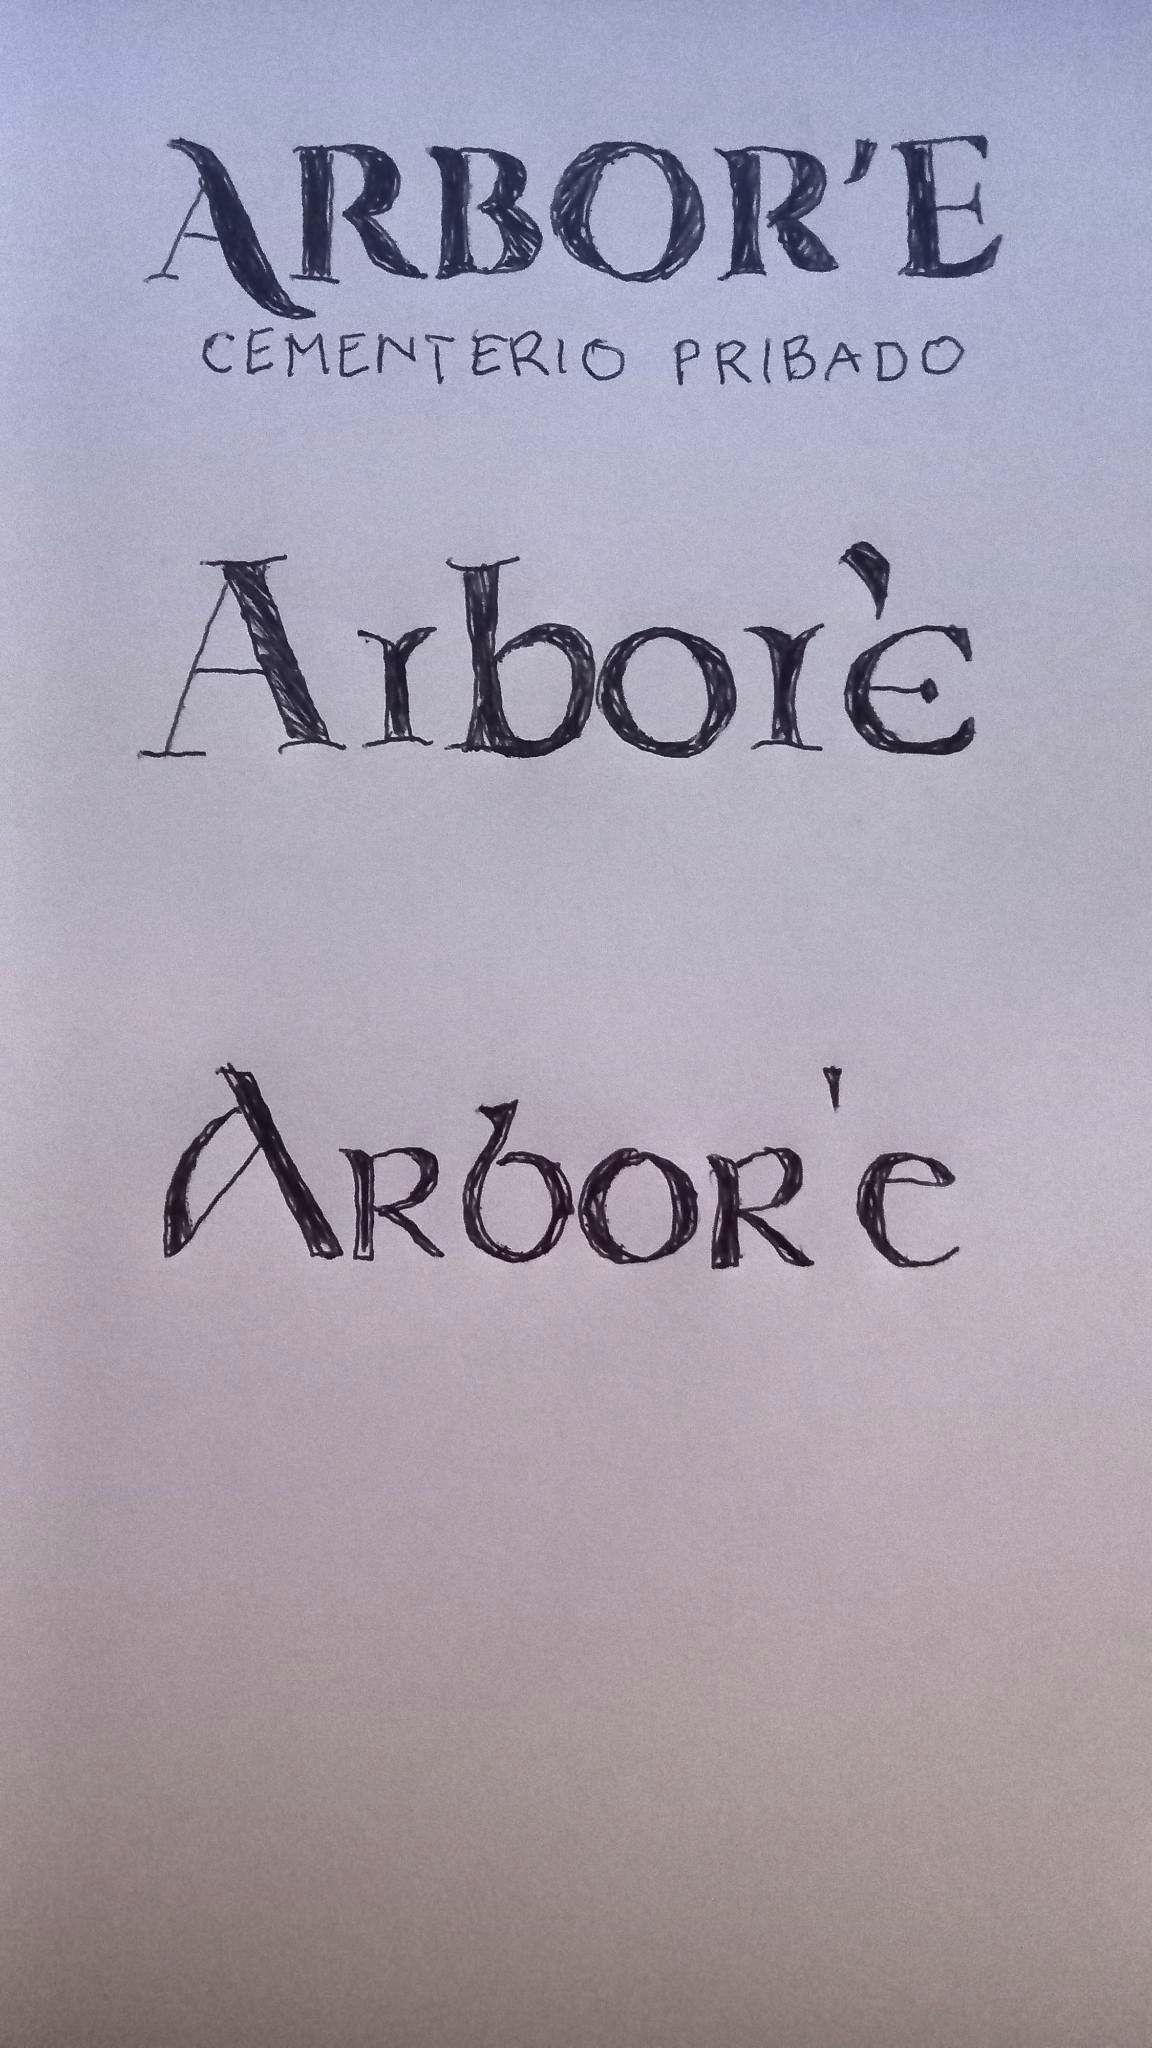 ARBOR'E
CEMENTERIO PRIBADO
Arborè
Arbor'e